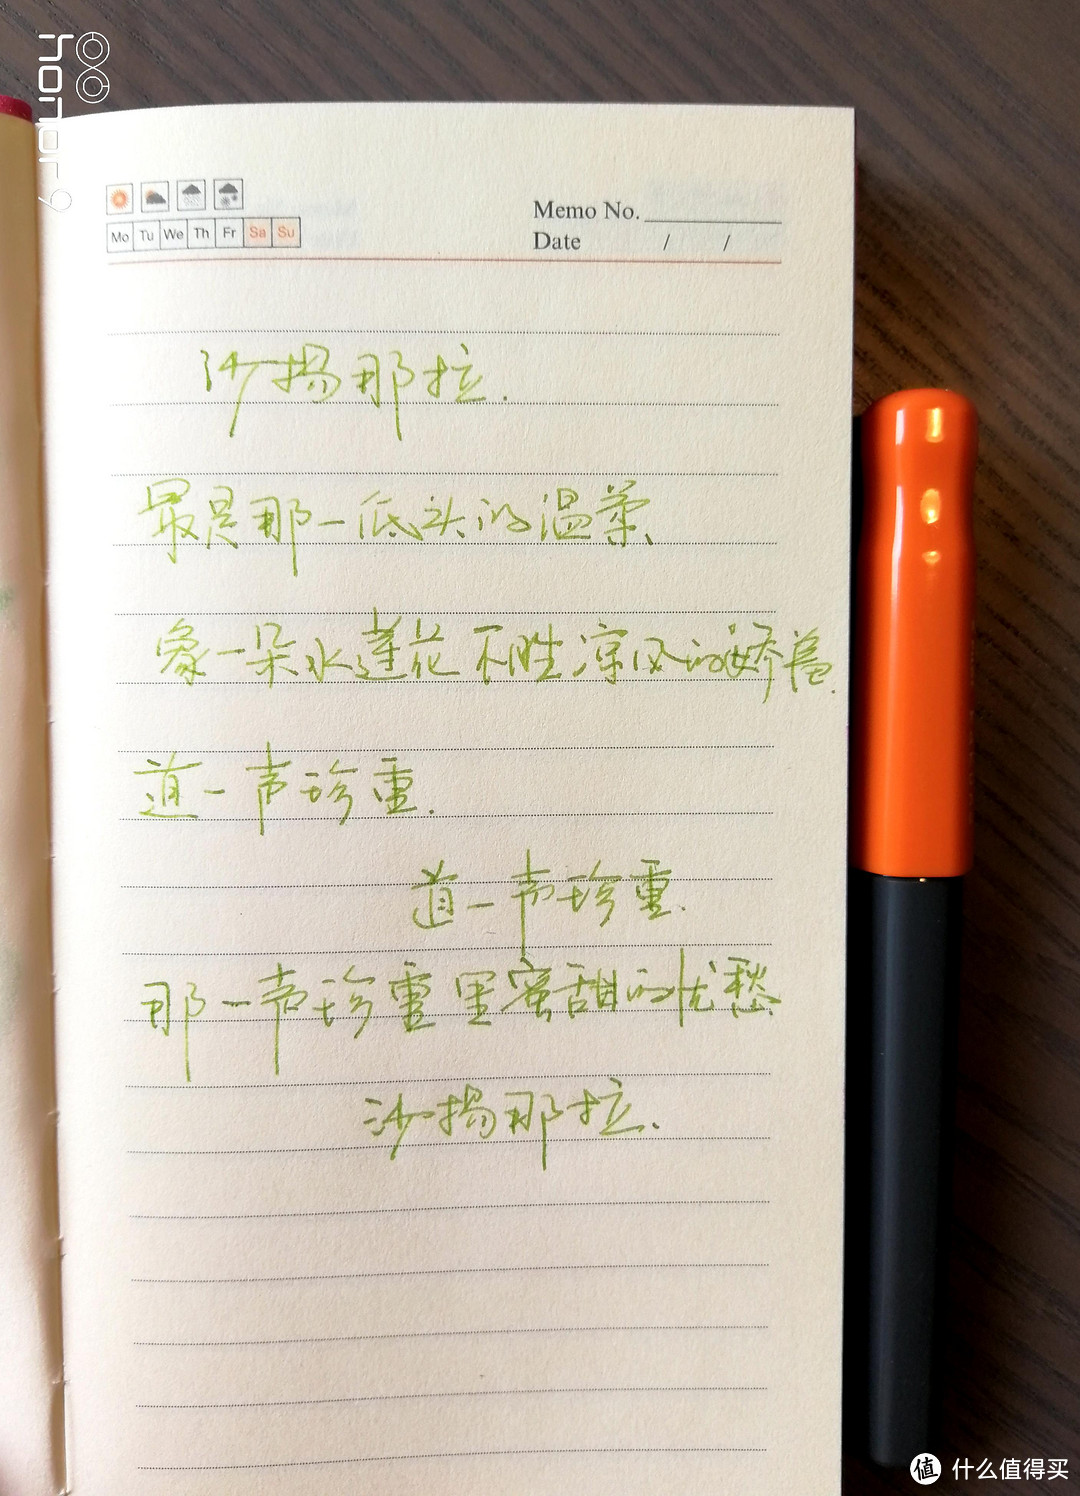 honor 9
Mo Tu We Th Fr Sa Su
Memo No.
Date / /
沙扬那拉.
最是那一低头的温柔、
象一朵水莲花不胜凉风的娇羞.
道一声珍重.
道一声珍重.
那一声珍重里蜜甜的忧愁
沙扬那拉.
值 什么值得买